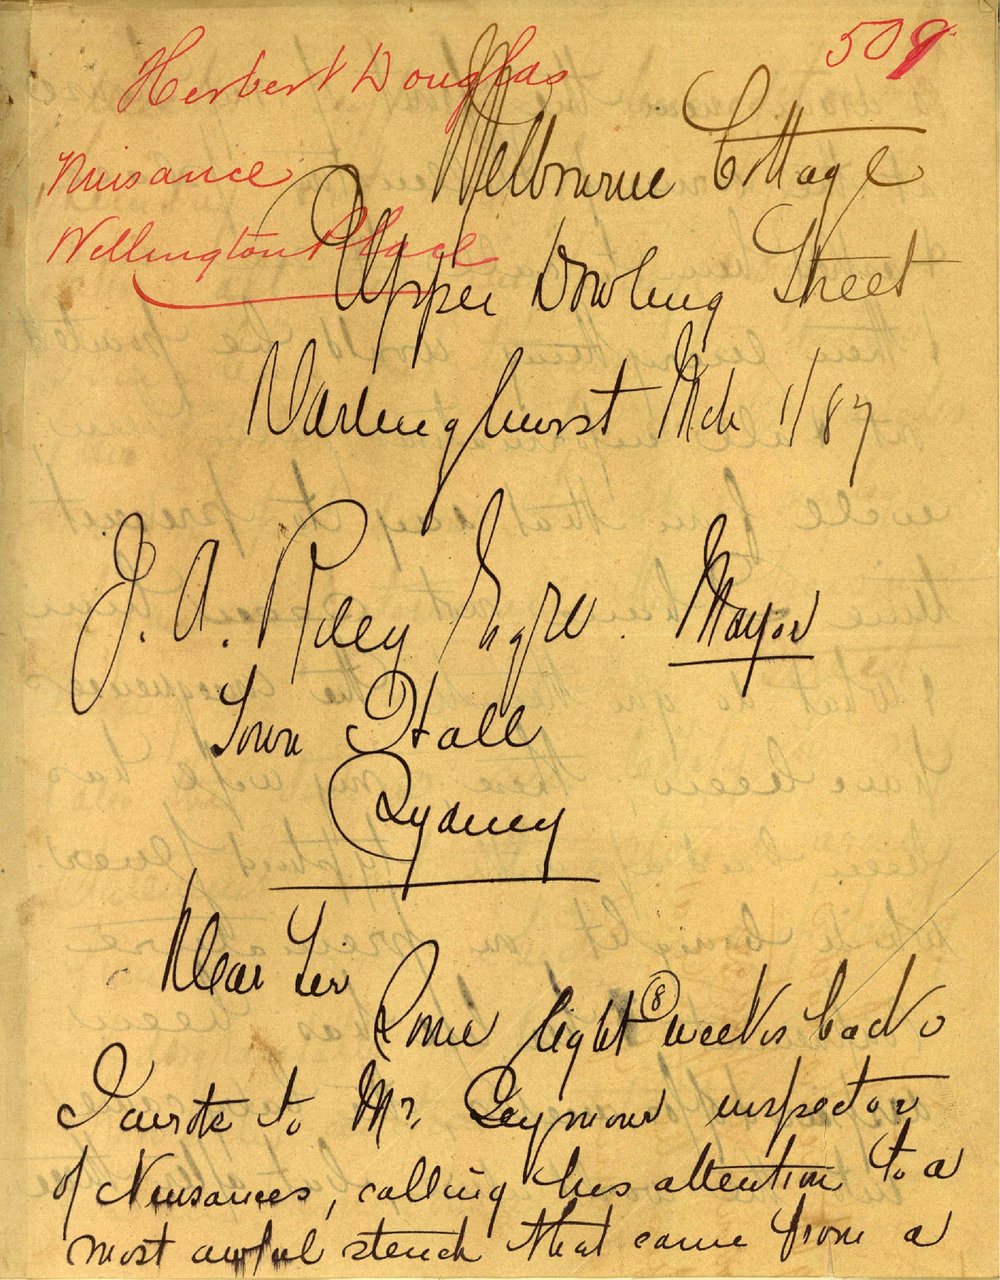 509
Herbert Douglas
Nuisance
Wellington Place
Melbourne Cottage
Upper Dowling Street
Darlinghurst Mch 1/87
J. A. Riley Esqre. Mayor
Town Hall
Sydney
Dear Sir
Some eight (8) weeks back
I wrote to Mr. Seymour inspector
of Nuisances, calling his attention to a
most awful stench that came from a